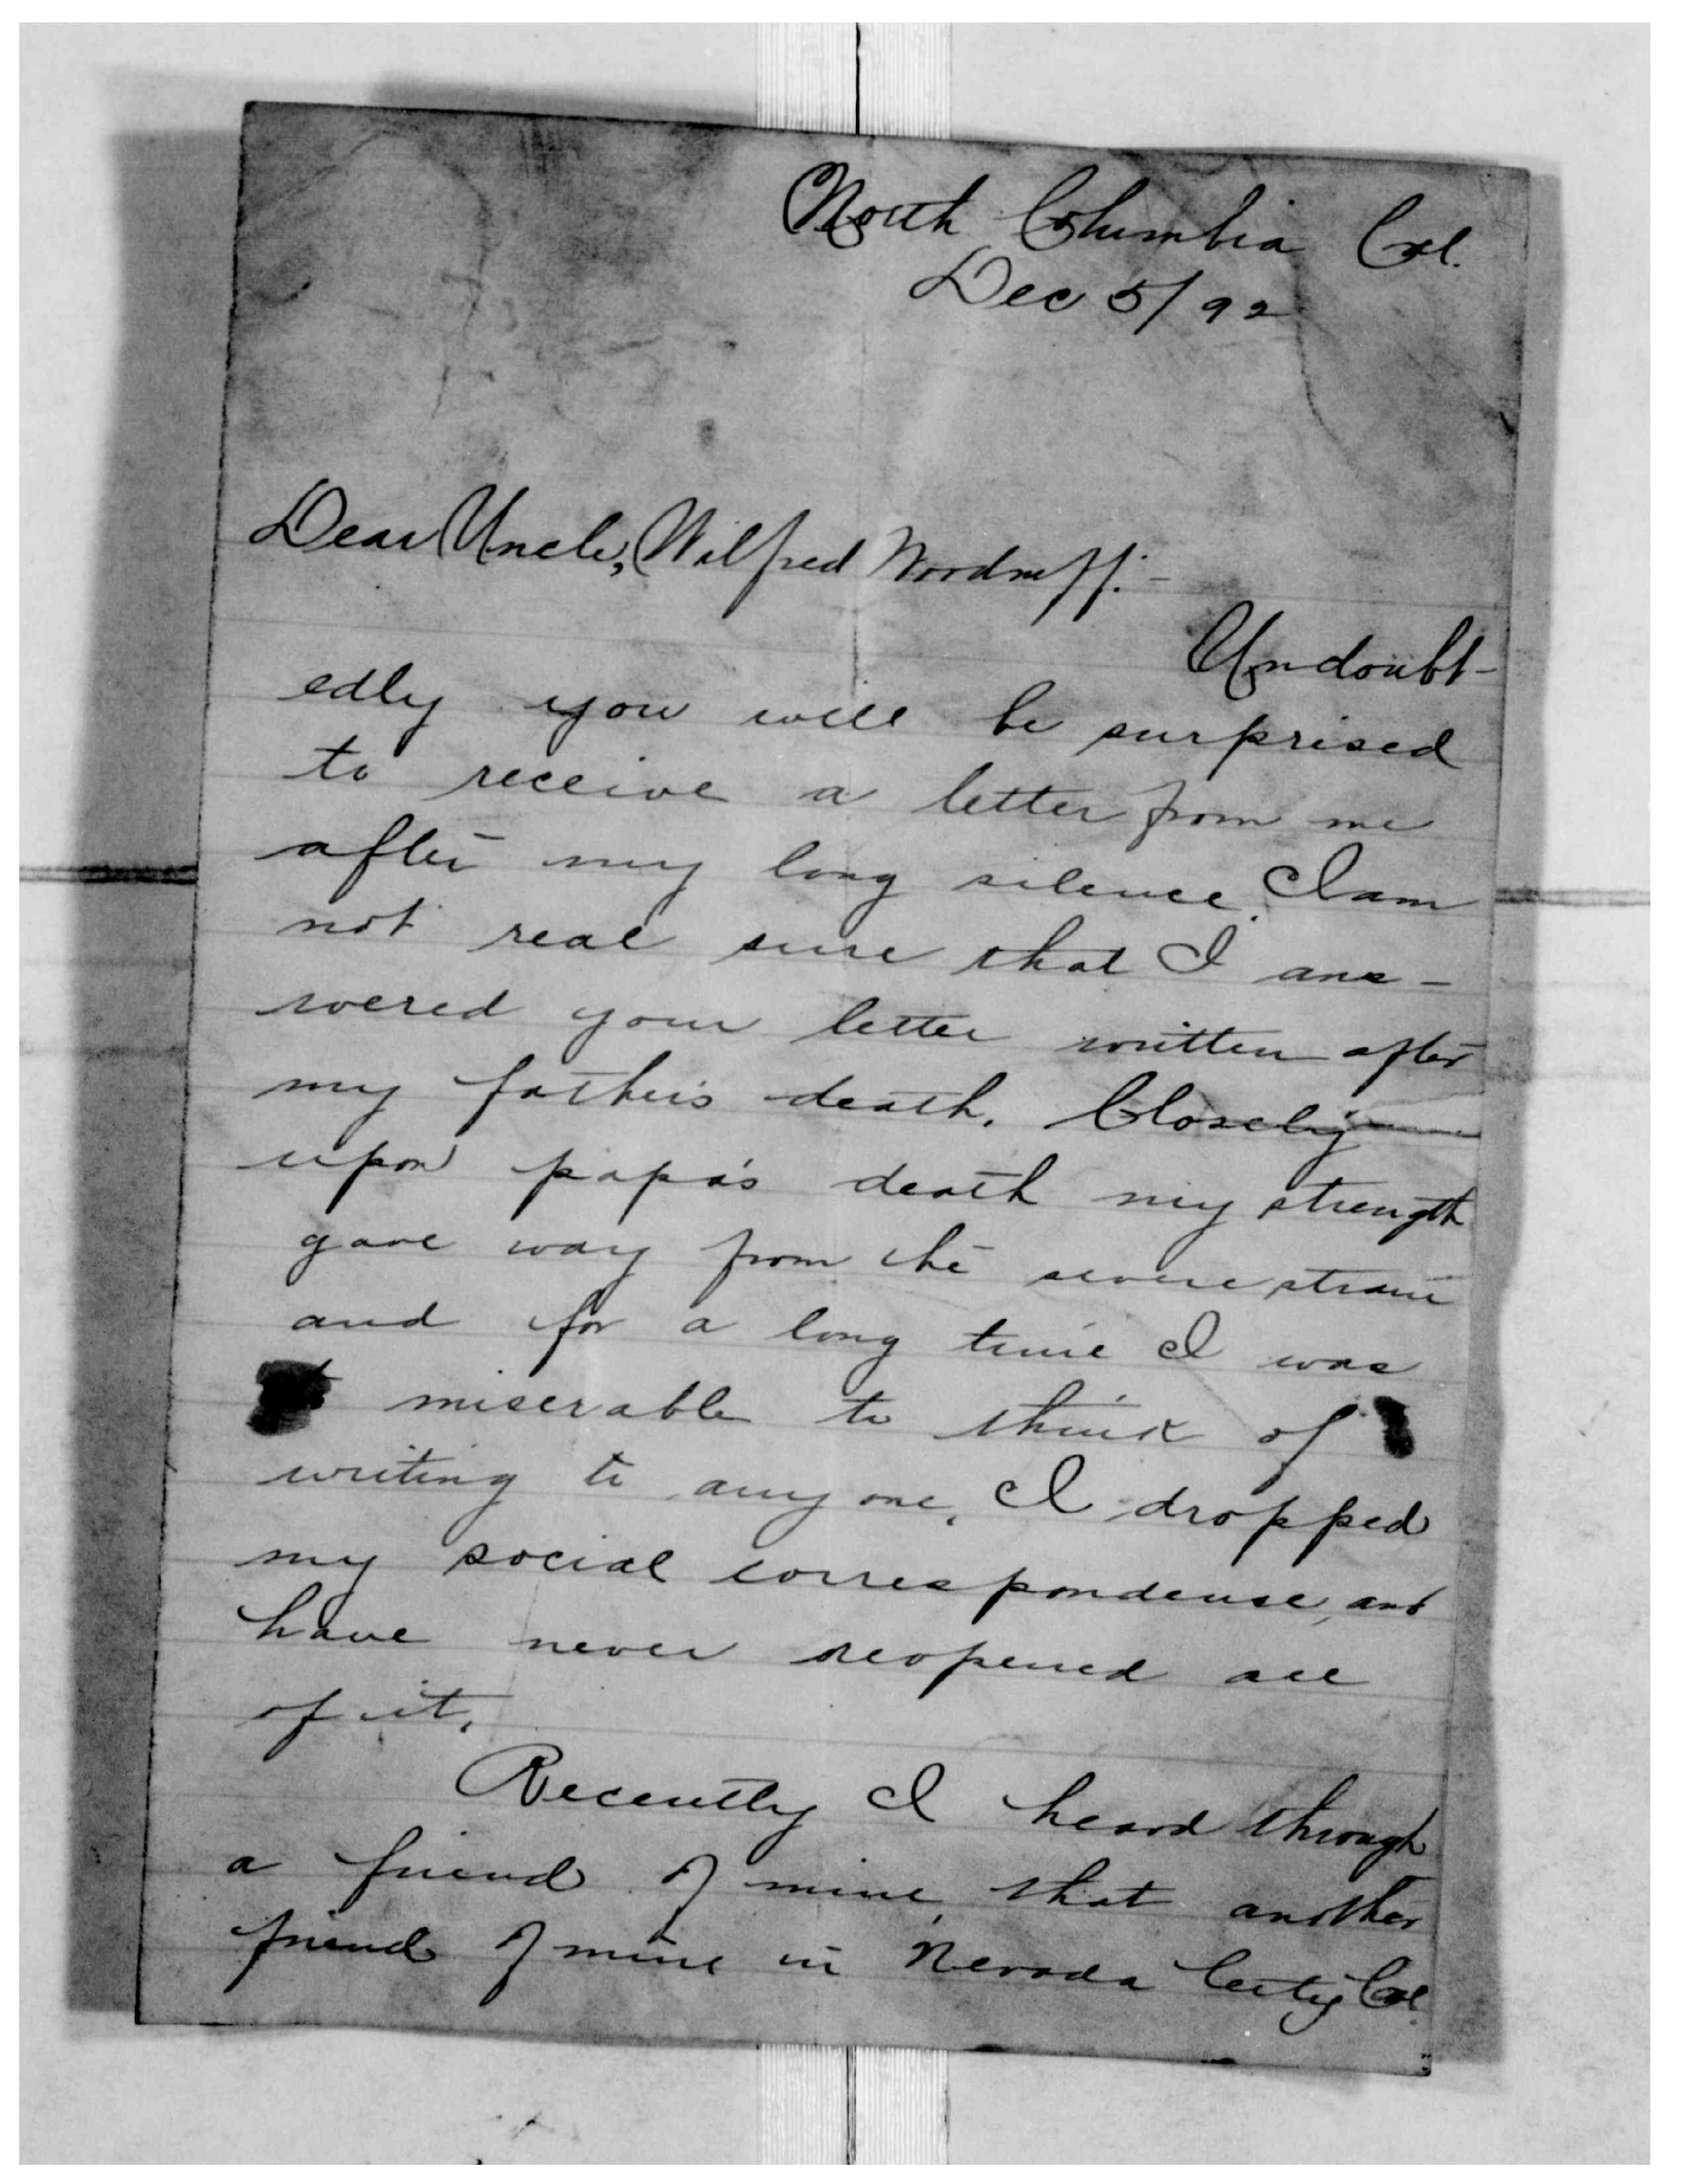 North Columbia Cal.
Dec 5/92
Dear Uncle, Wilford Woodruff:-
Undoubt-
edly you will be surprised
to receive a letter from me
after my long silence. I am
not real sure that I ans-
wered your letter written after
my father's death. Closely
upon papa's death my strength
gave way from the severe strain
and for a long time I was
miserable to think of
writing to any one, I dropped
my social correspondense, and
have never reopened all
of it.
Recently I heard through
a friend of mine, that another
friend of mine in Nevada City Cal.